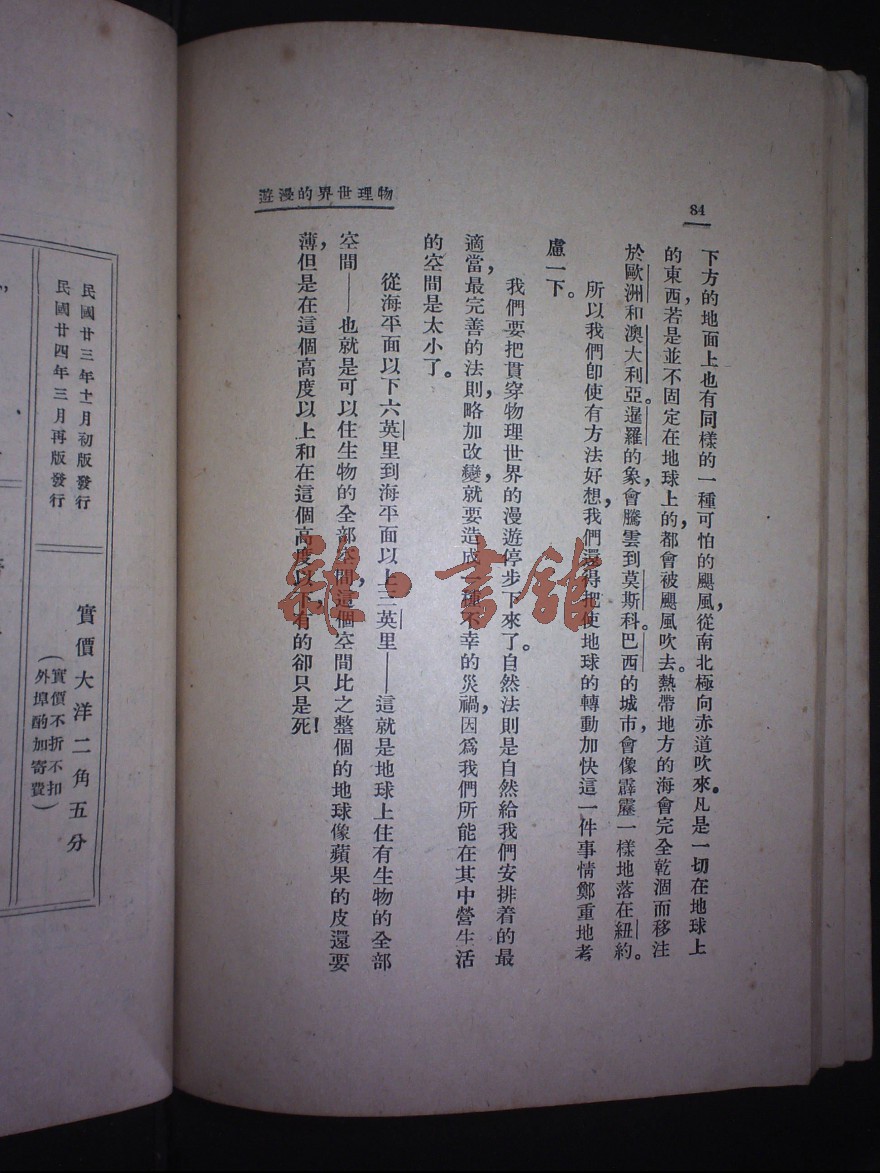 物理世界的漫遊
84
下方的地面上也有同樣的一種可怕的颶風，從南北極向赤道吹來。凡是一切在地球上
的東西，若是並不固定在地球上的，都會被颶風吹去。熱帶地方的海會完全乾涸而移注
於歐洲和澳大利亞。暹羅的象會騰雲到莫斯科。巴西的城市，會像霹靂一樣地落在紐約。
所以我們卽使有方法好想，我們還得把使地球的轉動加快這一件事情鄭重地考
慮一下。
我們要把貫穿物理世界的漫遊停步下來了。自然法則是自然給我們安排着的最
適當，最完善的法則，略加改變，就要造成一種不幸的災禍，因爲我們所能在其中營生活
的空間是太小了。
從海平面以下六英里到海平面以上三英里——這就是地球上住有生物的全部
空間——也就是可以住生物的全部空間，這個空間比之整個的地球像蘋果的皮還要
薄，但是在這個高度以上和在這個高度以下，有的卻只是死！
民國廿三年十一月初版發行
民國廿四年三月再版發行
實價大洋二角五分
（實價不折不扣
外埠酌加寄費）
雜·書館